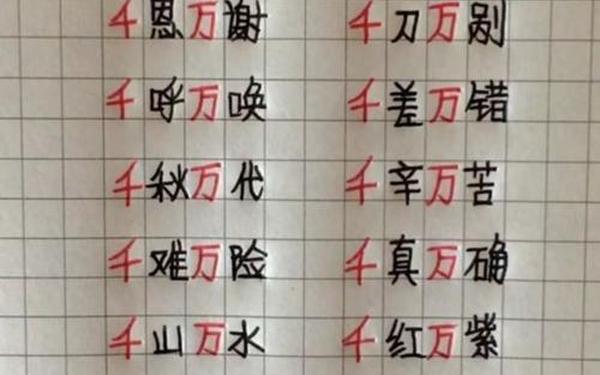 千恩万谢 千刀万剐
千呼万唤 千差万错
千秋万代 千辛万苦
千难万险 千真万确
千山万水 千红万紫